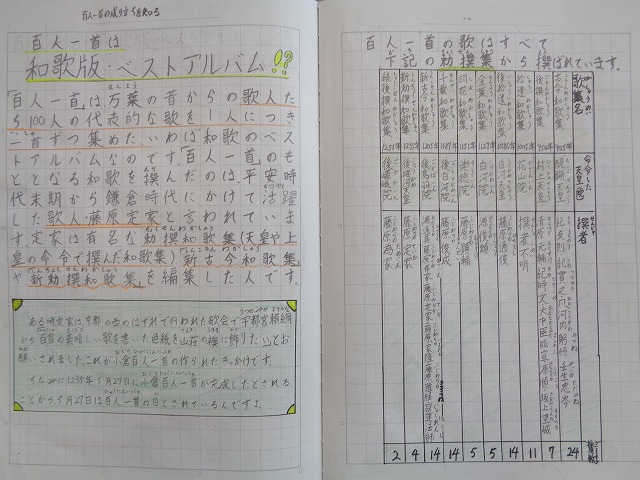 百人一首の成り立ちを知ろう
百人一首は
和歌版・ベストアルバム!?
「百人一首」は万葉の昔からの歌人た
ち100人の代表的な歌を1人につき
一首ずつ集めた、いわば和歌のベス
トアルバムなのです。「百人一首」のも
ととなる和歌を撰んだのは、平安時
代末期から鎌倉時代にかけて活躍
した歌人藤原定家と言われていま
す。定家は有名な勅撰和歌集(天皇や上
皇の命令で撰んだ和歌集)「新古今和歌集」
や「新勅撰和歌集」を編集した人です。
ある時定家は京都の西のはずれで行われた歌会で宇都宮頼綱
から百首の美味しい歌を書いた色紙を山荘の襖に飾りたい」とお
願いされました。これが小倉百人一首の作られたきっかけです。
ちなみに1235年5月27日に小倉百人一首が完成したとされる
ことから5月27日は百人一首の日とされているんですよ。
百人一首の歌はすべて
下記の勅撰集から撰ばれています。
歌集名
古今和歌集 905年
後撰和歌集
拾遺和歌集
後拾遺和歌集
金葉和歌集
詞花和歌集
千載和歌集
新古今和歌集
新勅撰和歌集
続後撰和歌集 1251年
命令した天皇(院)
醍醐天皇
村上天皇
花山院
白河院
白河院
崇徳院
後白河院
後鳥羽院
後堀河院
後嵯峨院
撰者
紀友則 紀貫之 凡河内躬恒 壬生忠岑
清原元輔 紀時文 大中臣能宣 源順 坂上望城
撰者不明
藤原通俊
源俊頼
藤原顕輔
藤原俊成
藤原定家
藤原為家
首数
24
7
11
14
5
5
14
14
4
2